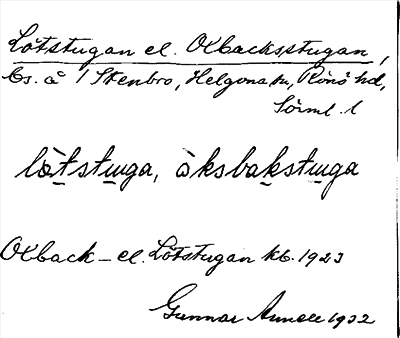 Lötstugan el. Olbacksstugan,
bs. å 1 Stenbro, Helgona sn, Rönö hd,
Sörml. l
lö̀tstuga, ò̀ksbakstuga
Olback- el. Lötstugan kb. 1923
Gunnar Arnell 1932